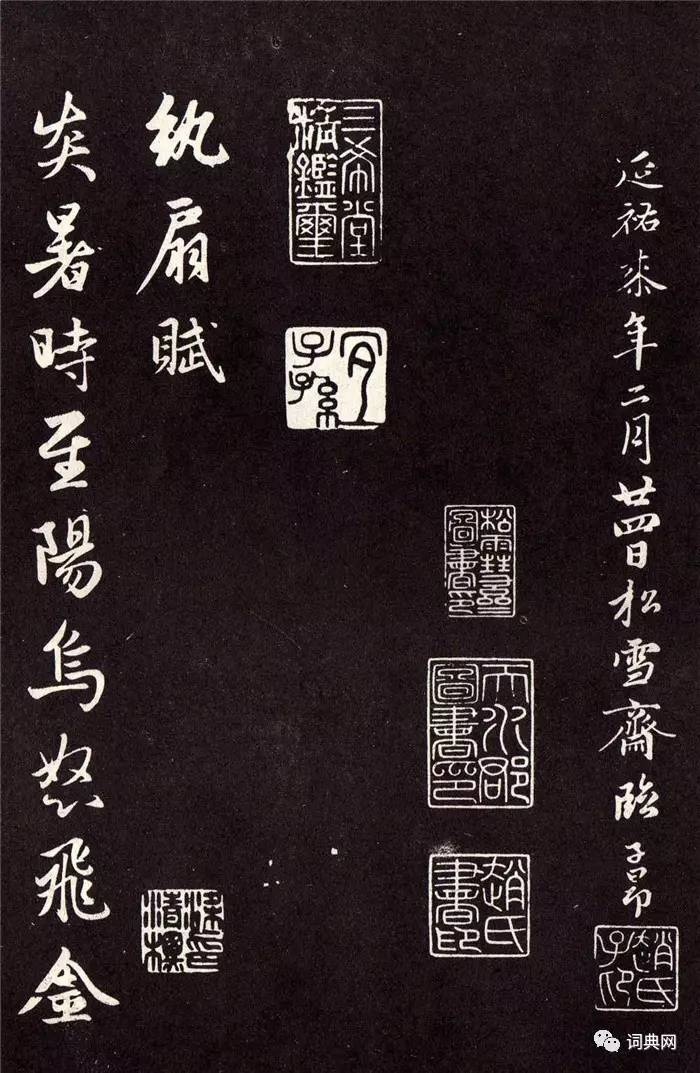 延祐柒年二月廿四日松雪齋臨子昂
趙氏子昂
松雪齋圖書印
天水郡圖書印
趙氏書印
三希堂精鑑璽
宜子孫
紈扇賦
炎暑時至陽烏怒飛金
词典网